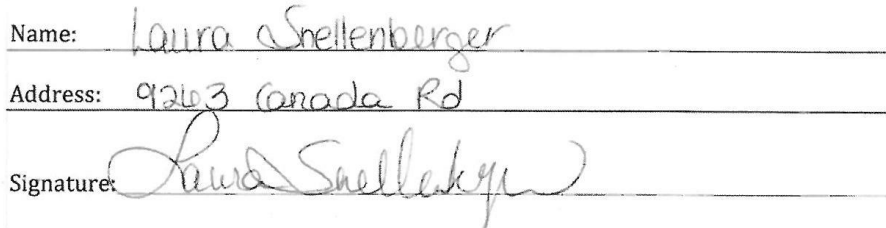 Name: Laura Snellenberger
Address: 9263 Canada Rd
Signature: Laura Snellenberger